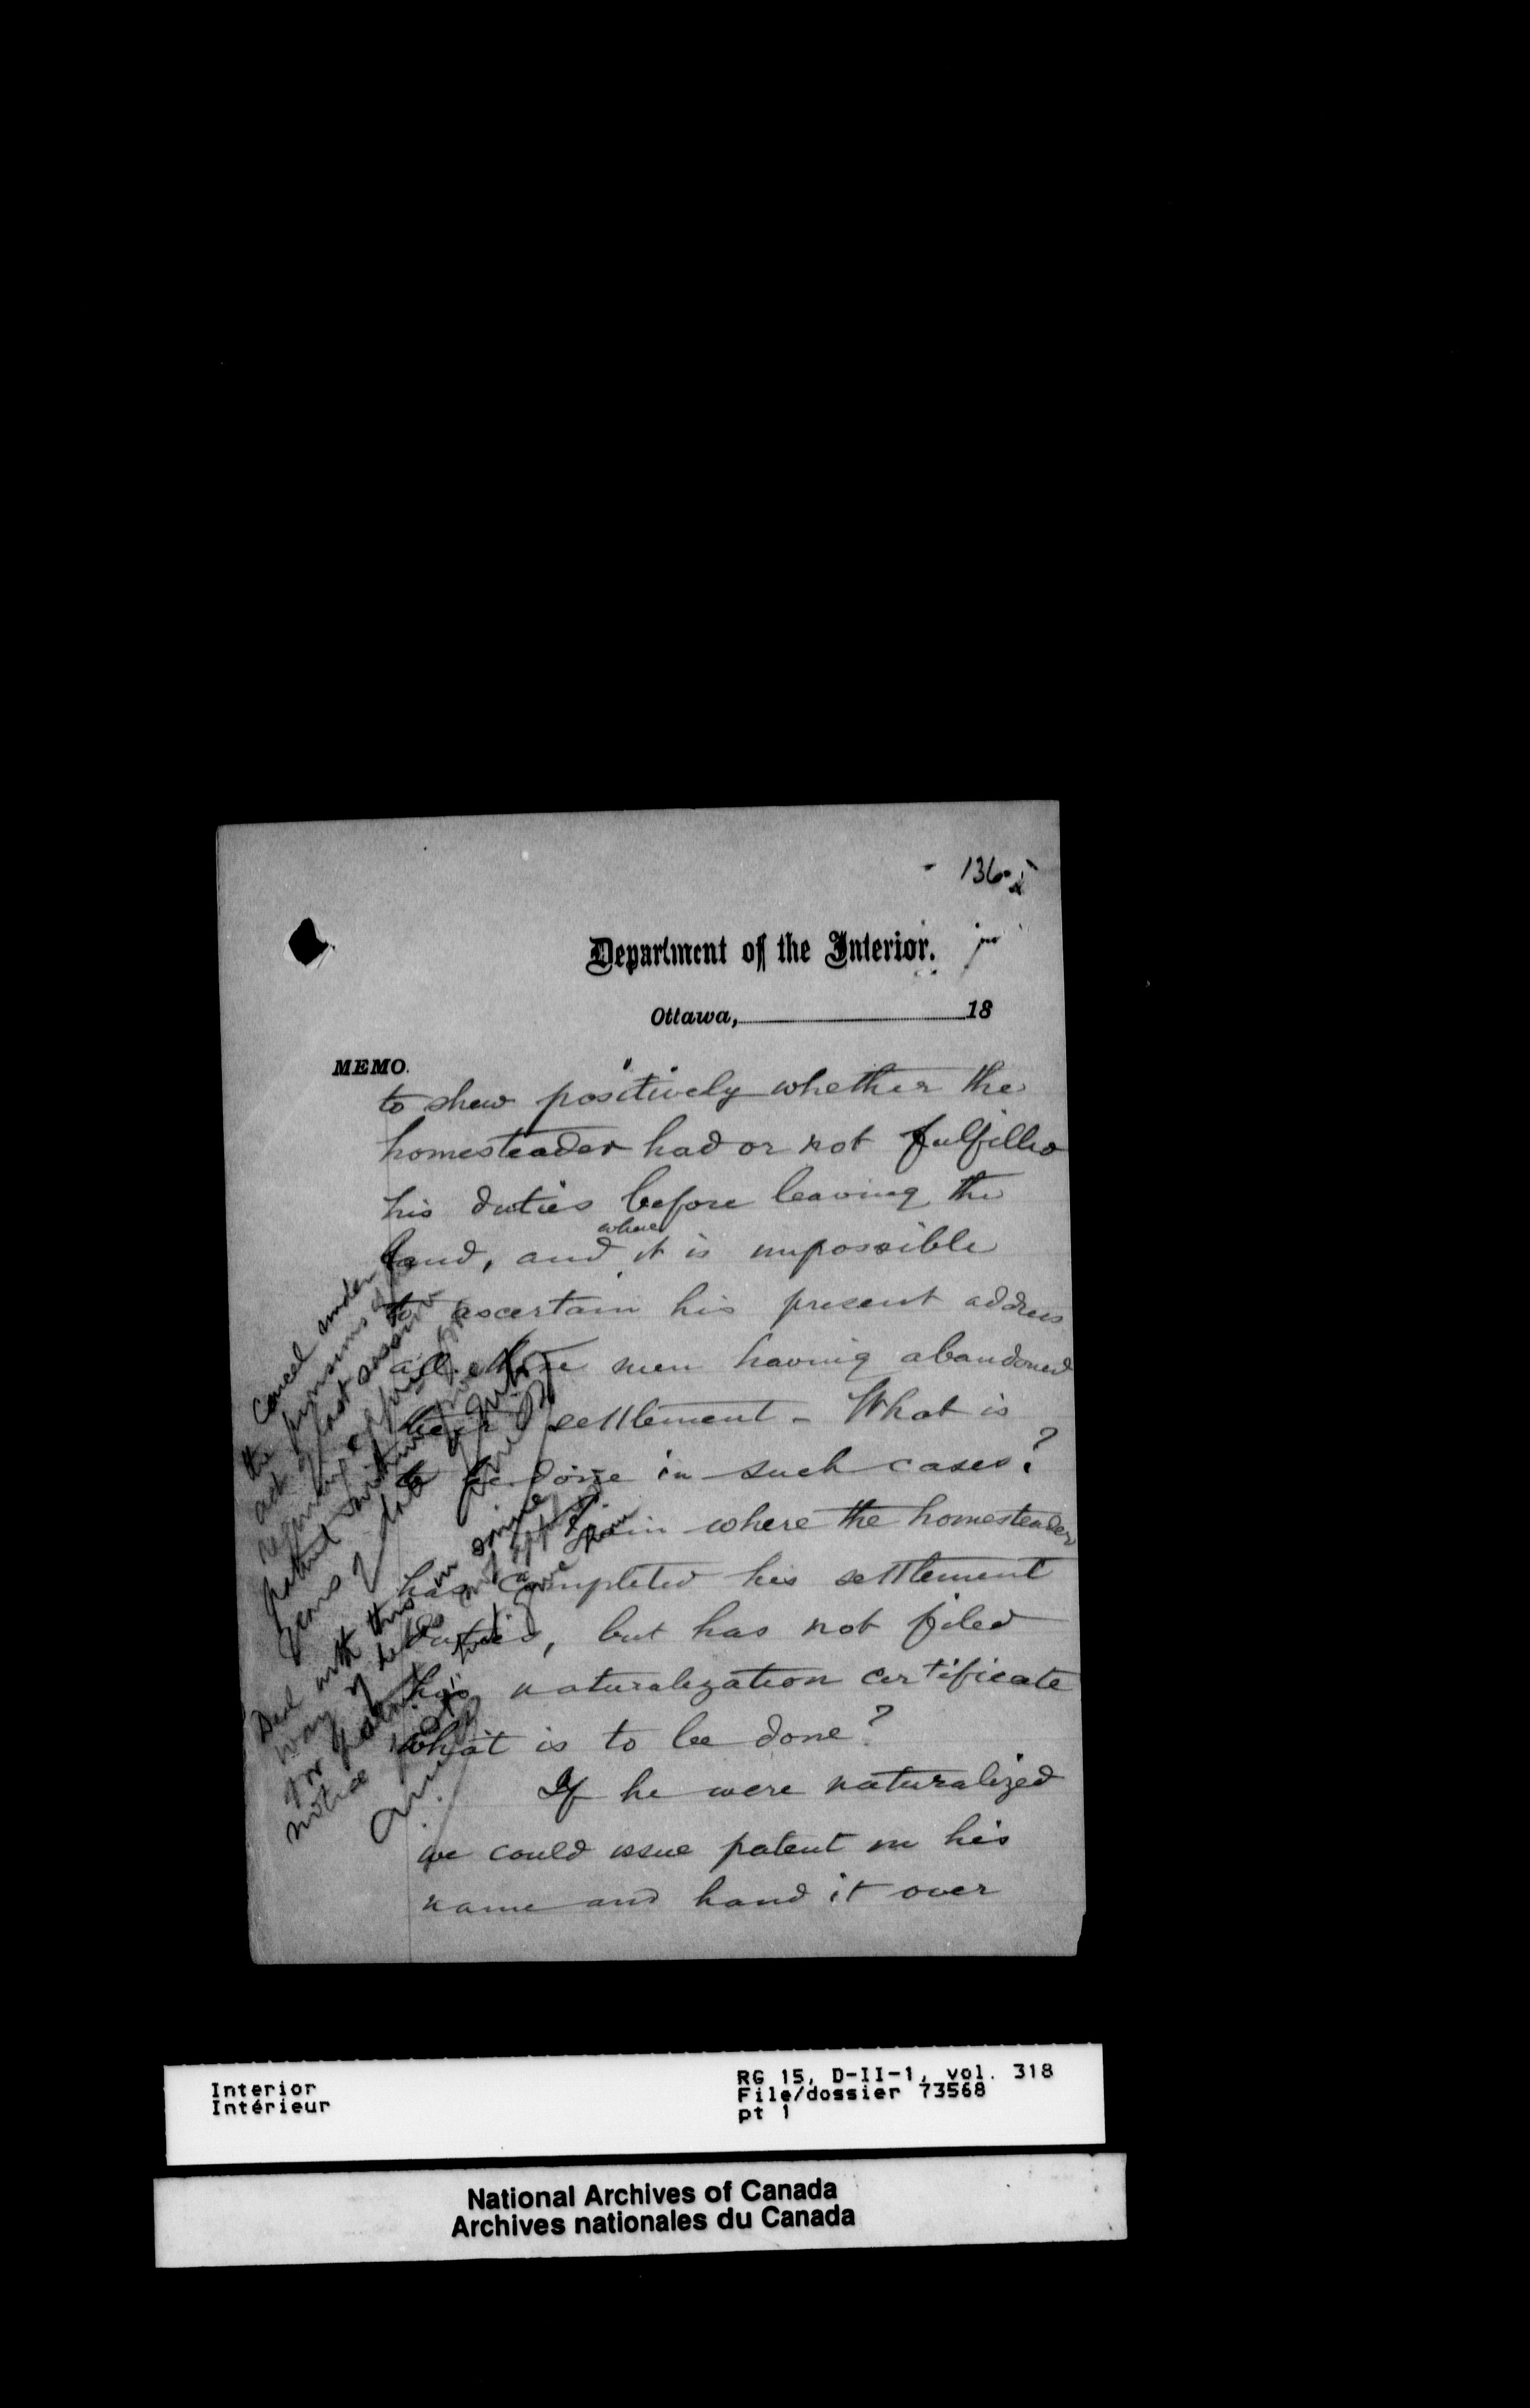 136
Department of the Interior.
Ottawa, 18
MEMO.
to shew positively whether the
homesteader had or not fulfilled
his duties before leaving the
land, and where it is impossible
to ascertain his present address
all these men having abandoned
their settlement - What is
to be done in such cases?
Again where the homesteader
has completed his settlement
duties, but has not filed
his naturalization certificate
what is to be done?
If he were naturalized
we could issue patent in his
name and hand it over
Cancel under
the provisions of
act of last session
requiring application for
patent within five
years of date of
Deal with this in same
way if he does not apply
for patent
notice
Interior
Intérieur
RG 15, D-II-1, vol. 318
File/dossier 73568
pt 1
National Archives of Canada
Archives nationales du Canada